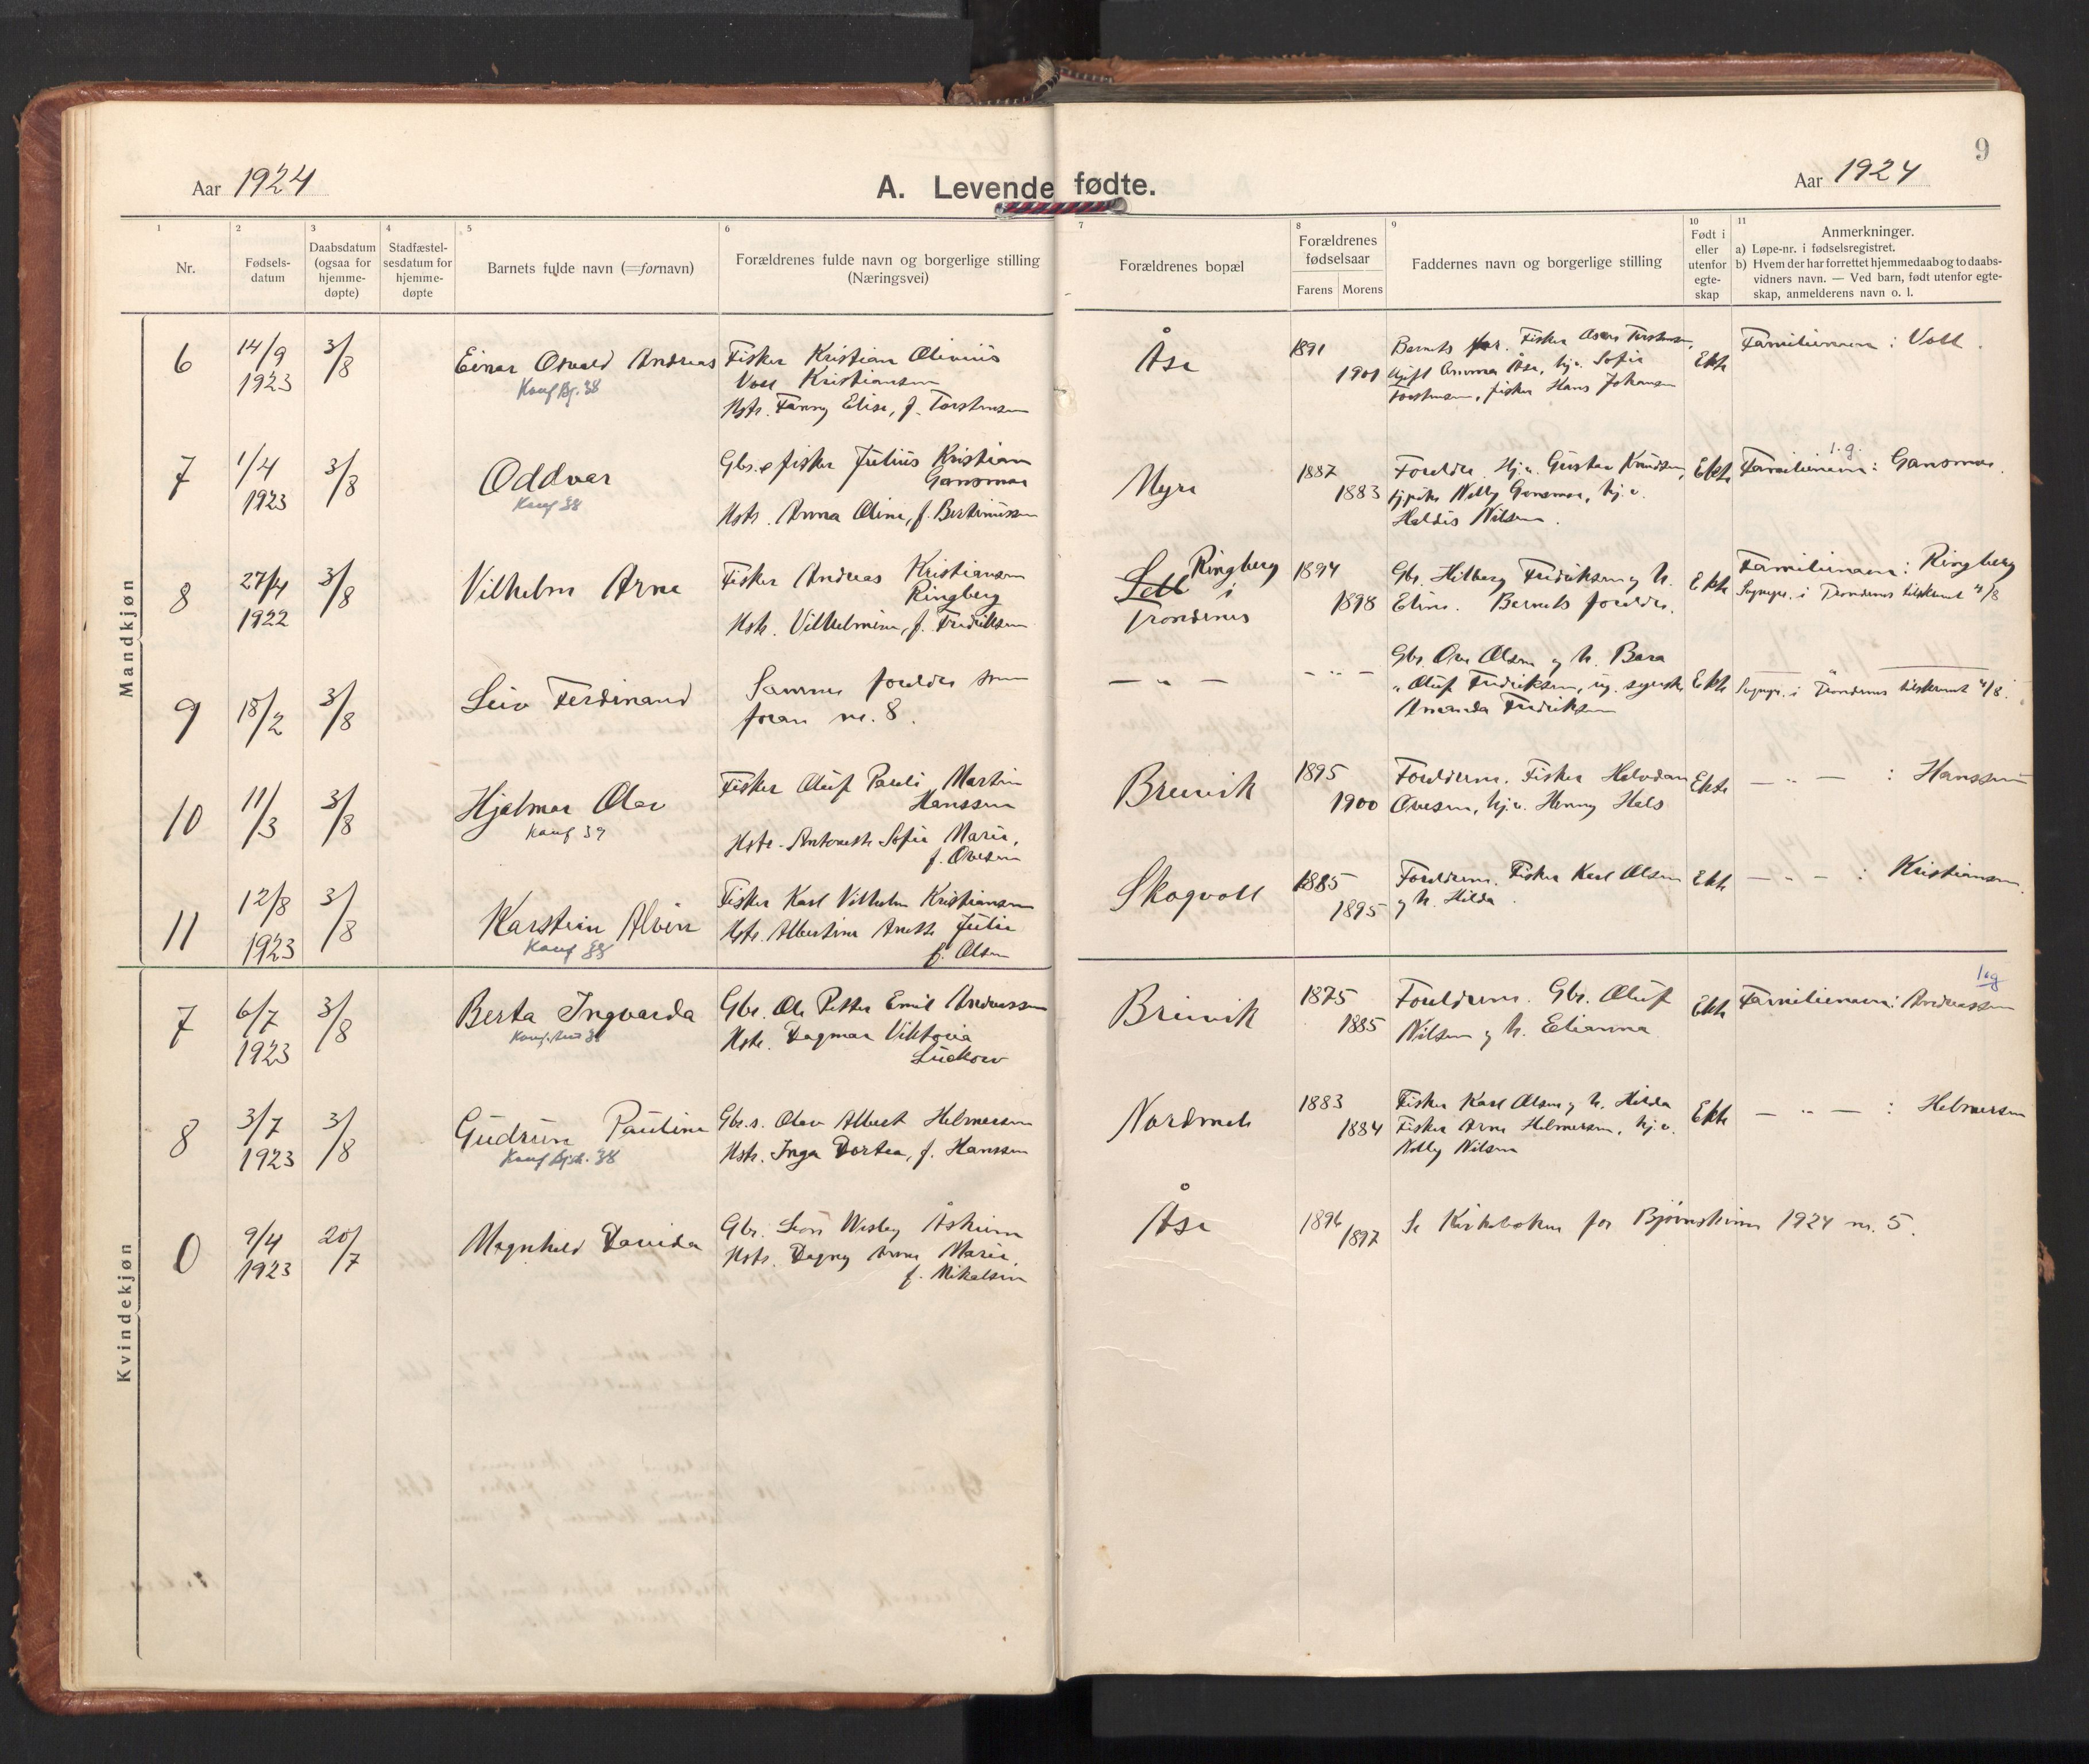 9
Aar 1924
A. Levende fødte.
Aar 1924
1 2 3 4 5 6 7 8 9 10 11
Nr.
Fødsels-
datum
Daabsdatum
(ogsaa for
hjemme-
døpte)
Stadfæstel-
sesdatum for
hjemme-
døpte
Barnets fulde navn (=fornavn)
Forældrenes fulde navn og borgerlige stilling
(Næringsvei)
Forældrenes bopæl
Forældrenes
fødselsaar
Farens Morens
Faddernes navn og borgerlige stilling
Født i
eller
utenfor
egte-
skap
Anmerkninger.
a) Løpe-nr. i fødselsregistret.
b) Hvem der har forrettet hjemmedaab og to daabs-
vidners navn. — Ved barn, født utenfor egte-
skap, anmelderens navn o. l.
Mandkjøn
6
14/9
1923
3/8
Einar Osvald Andreas
Konf Bj. 38
Fisker Kristian Olinius
Voll Kristiansen
Hstr. Fanny Elise, f. Torstensen
Åse
1891
1901
Barnets far. Fisker Torstensen,
Ugift Åse, hj.v. Sofie
Torstensen, fisker Hans Johansen
Ekte
Familienavn: Voll.
7
1/4
1923
3/8
Oddvar
Konf 38
Gbr. & fisker Julius Kristian
Gansmoe
Hstr. Anna Oline, f. Bertinussen
Myre
1887
1883
Foreldre. Hj.v. Gustav Knudsen,
Nelly Gansmoe, hj.v.
Haldis Nilsen.
Ekte
1.g.
Familienavn: Gansmoe.
8
27/4
1922
3/8
Vilhelm Arne
Fisker Andreas Kristiansen
Ringberg
Hstr. Vilhelmine, f. Fredriksen
Ringberg
i
Trondenes
1894
1898
Gbr. Hilberg Fredriksen og h.
Eline. Barnets foreldre.
Ekte
Familienavn: Ringberg
Sognepr. i Trondenes tilskrevet 4/8
9
18/2
3/8
Leiv Ferdinand
Samme foreldre som
foran nr. 8.
— " —
- " -
Gbr. Ove Olsen og h. Bera
" Oluf Fredriksen, ug. syerske
Amanda Fredriksen
Ekte
— " —
Sognepr. i Trondenes tilskrevet 4/8.
10
11/3
3/8
Hjalmar Olav
Konf 39
Fisker Oluf Pauli Martin
Hanssen
Hstr. Antonette Sofie Marie,
f. Ovesen
Breivik
1895
1900
Foreldrene. Fisker Halvdan
Ovesen, hj.v. Henny Hals
Ekte
— " — : Hanssen
11
12/8
1923
3/8
Karstein Alvin
Konf 38
Fisker Karl Vilhelm Kristiansen
Hstr. Albertine Anette Julie
f. Olsen
Skogvoll
1885
1895
Foreldrene. Fisker Karl Olsen
og h. Hilda.
Ekte
— " — : Kristiansen.
Kvindekjøn
7
6/7
1923
3/8
Berta Ingvarda
Gbr. Ole Petter Emil Andreassen
Hstr. Dagmar Viktoria
Lückow
Breivik
1875
1885
Foreldrene. Gbr. Oluf
Nilsen og h. Elianna
Ekte
1.g
Familienavn: Andreassen
8
3/7
1923
3/8
Gudrun Pauline
Konf Bjst. 38
Gbr.s. Olav Albert Helmersen
Hstr. Inga Dortea, f. Hanssen
Nordmela
1883
1884
Fisker Karl Olsen og h. Hilda
Fisker Arne Helmersen, hj.v.
Nelly Nilsen
Ekte
— " — : Helmersen
0
9/4
1923
20/7
Magnhild Davida
Gbr. Leon Wesley Åsheim
Hstr. Dagny Anna Marie,
f. Mikalsen
Åse
1896
1897
Se Kirkeboken for Bjørnskinn 1924 nr. 5.